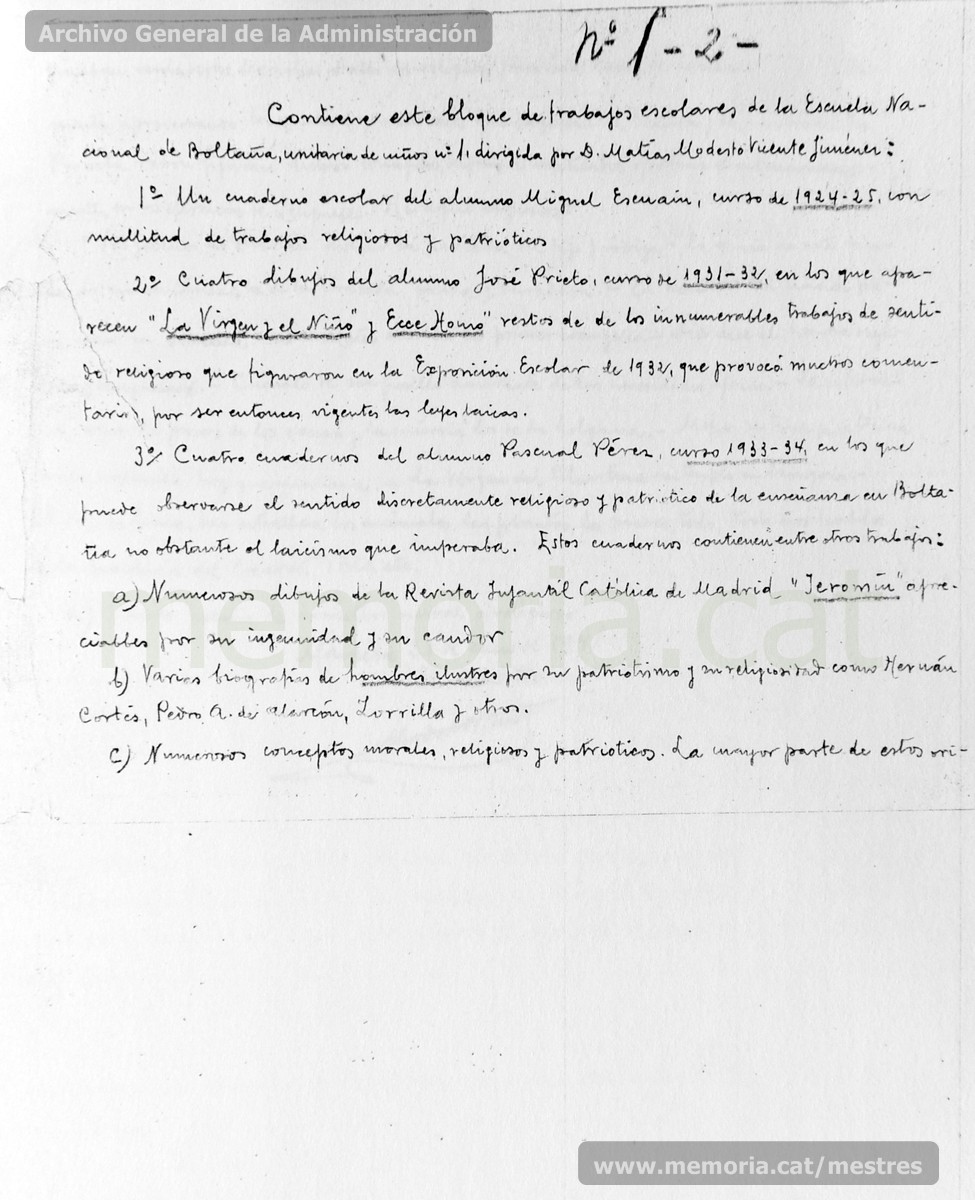 Archivo General de la Administración
nº 1 - 2 -
Contiene este bloque de trabajos escolares de la Escuela Na-
cional de Boltaña, unitaria de niños nº 1, dirigida por D. Matías Modesto Vicente Jiménez:
1º Un cuaderno escolar del alumno Miguel Escuain, curso de 1924-25, con
mullitud de trabajos religiosos y patrióticos
2º Cuatro dibujos del alumno José Prieto, curso de 1931-32, en los que apa-
recen "La Virgen y el Niño" y Ecce Homo" restos de de los innumerables trabajos de senti-
do religioso que figuraron en la Exposición Escolar de 1932, que provocó muchos comen-
tarios, por ser entonces vigentes las leyes laicas.
3º Cuatro cuadernos del alumno Pascual Pérez, curso 1933-34, en los que
puede observarse el sentido discretamente religioso y patriótico de la enseñanza en Bolta-
ña no obstante el laicismo que imperaba. Estos cuadernos contienen entre otros trabajos:
a) Numerosos dibujos de la Revista Infantil Católica de Madrid "Jeromín" apre-
ciables por su ingenuidad y su candor
b) Varias biografías de hombres ilustres por su patriotismo y su religiosidad como Hernán
Cortés, Pedro A. de Alarcón, Zorrilla y otros.
c) Numerosos conceptos morales, religiosos y patrióticos. La mayor parte de estos ori-
memoria.cat
www.memoria.cat/mestres